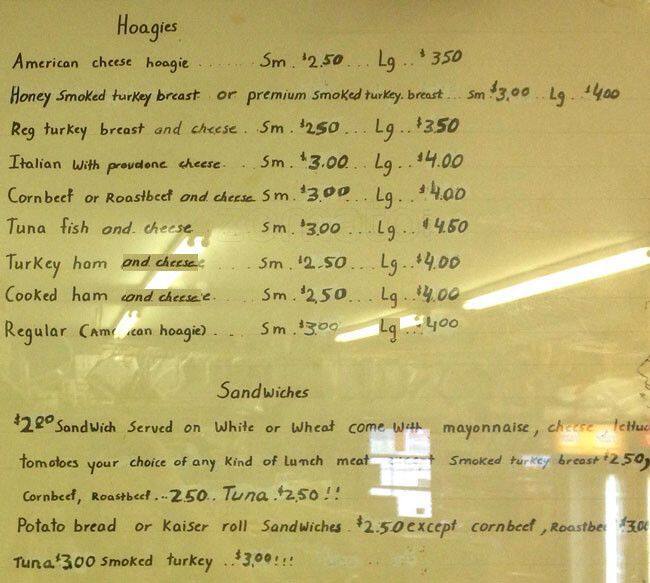 Hoagies
American cheese hoagie ....... Sm. $2.50 ... Lg .. $3.50
Honey Smoked turkey breast or premium smoked turkey. breast... Sm $3.00 .. Lg . $4.00
Reg turkey breast and cheese. Sm. $2.50... Lg.. $3.50
Italian With provdone cheese. Sm. $3.00... Lg.. $4.00
Cornbeef or Roastbeef and cheese Sm. $3.00 ... Lg.. $4.00
Tuna fish and. cheese Sm. $3.00... Lg.. $4.50
Turkey ham and cheese ... Sm. $2.50... Lg.. $4.00
Cooked ham and cheese. .. Sm. $2.50... Lg.. $4.00
Regular (American hoagie).... Sm. $3.00 Lg .. $4.00
Sandwiches
$2.00 Sandwich Served on White or Wheat come with mayonnaise, cheese, lettuc
tomatoes your choice of any Kind of Lunch meat Smoked turkey breast $2.50,
Cornbeef, Roastbeef...2.50.. Tuna.$2.50!!
Potato bread or Kaiser roll Sandwiches.$2.50 except cornbeef, Roastbee $3.00
Tuna $3.00 Smoked turkey ..$3.00!!!